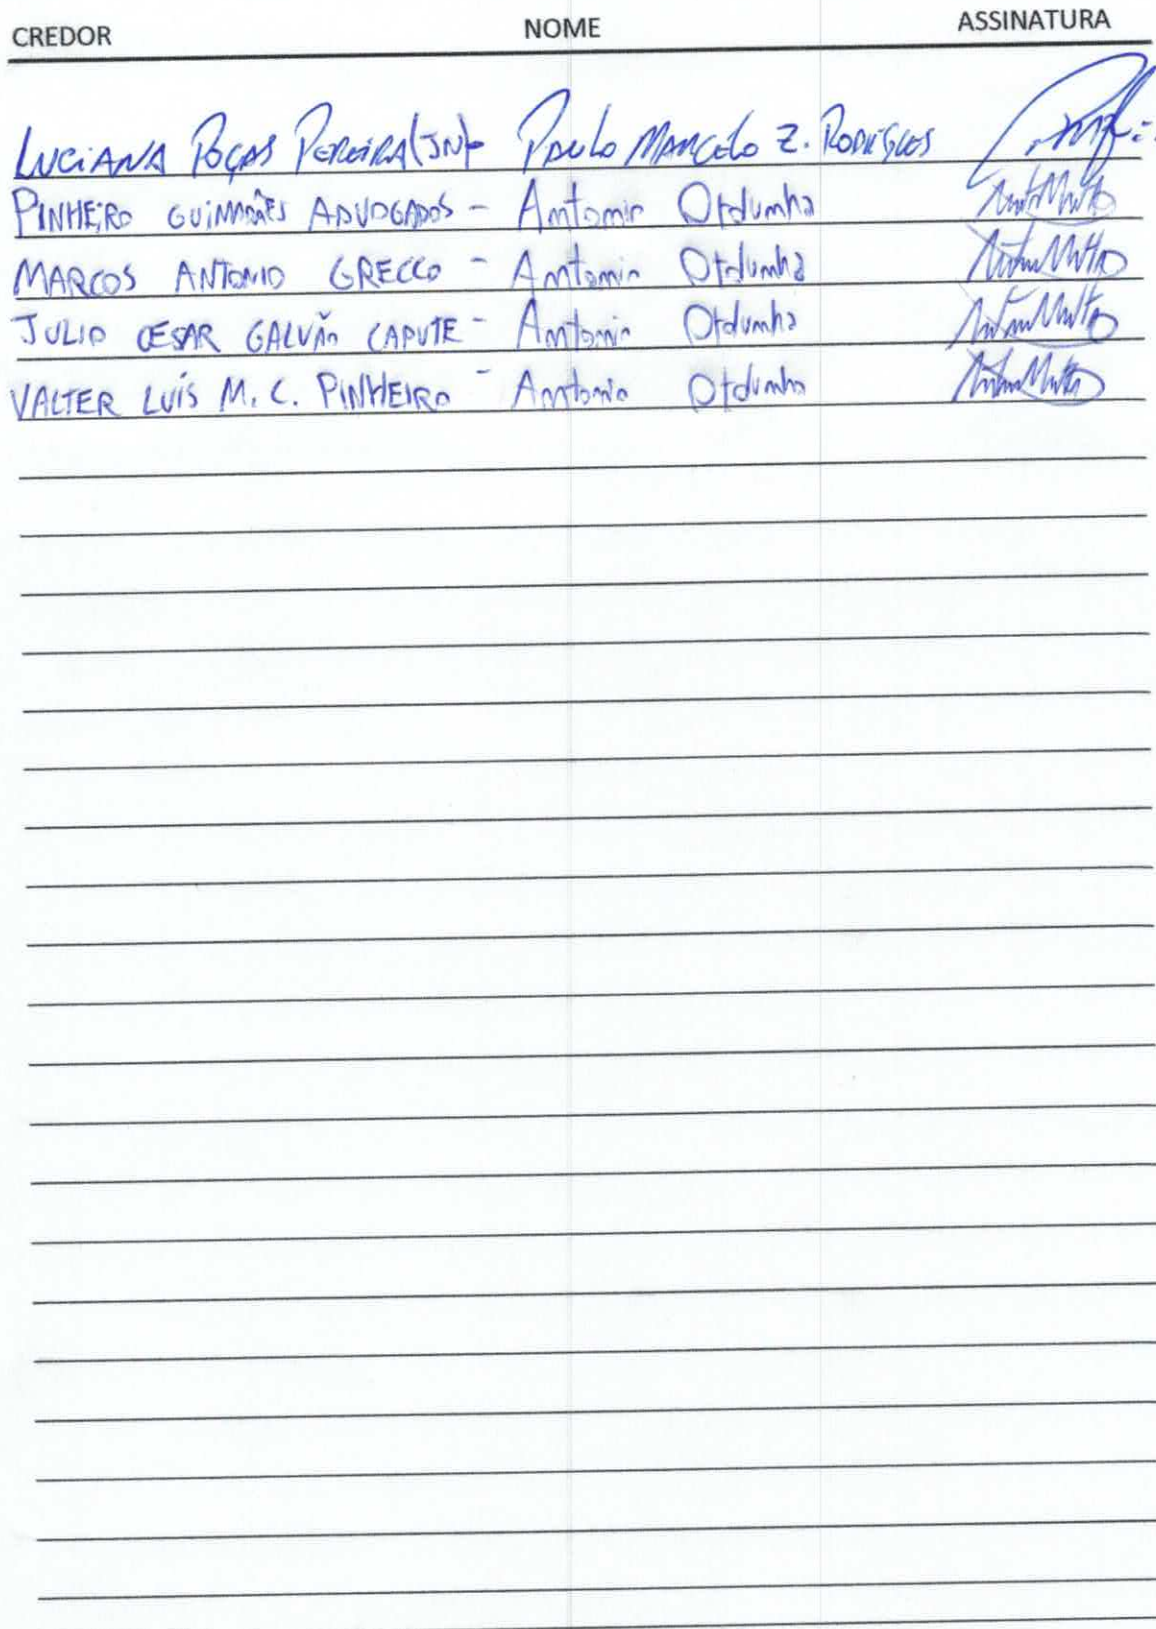 CREDOR NOME ASSINATURA
LUCIANA POÇAS PEREIRA (JN) - PAULO MARCELO Z. RODRIGUES
PINHEIRO GUIMARÃES ADVOGADOS - Antonio Ordunha
MARCOS ANTONIO GRECCO - Antonio Ordunha
JULIO CESAR GALVÃO CAPUTE - Antonio Ordunha
VALTER LUÍS M. C. PINHEIRO - Antonio Ordunha